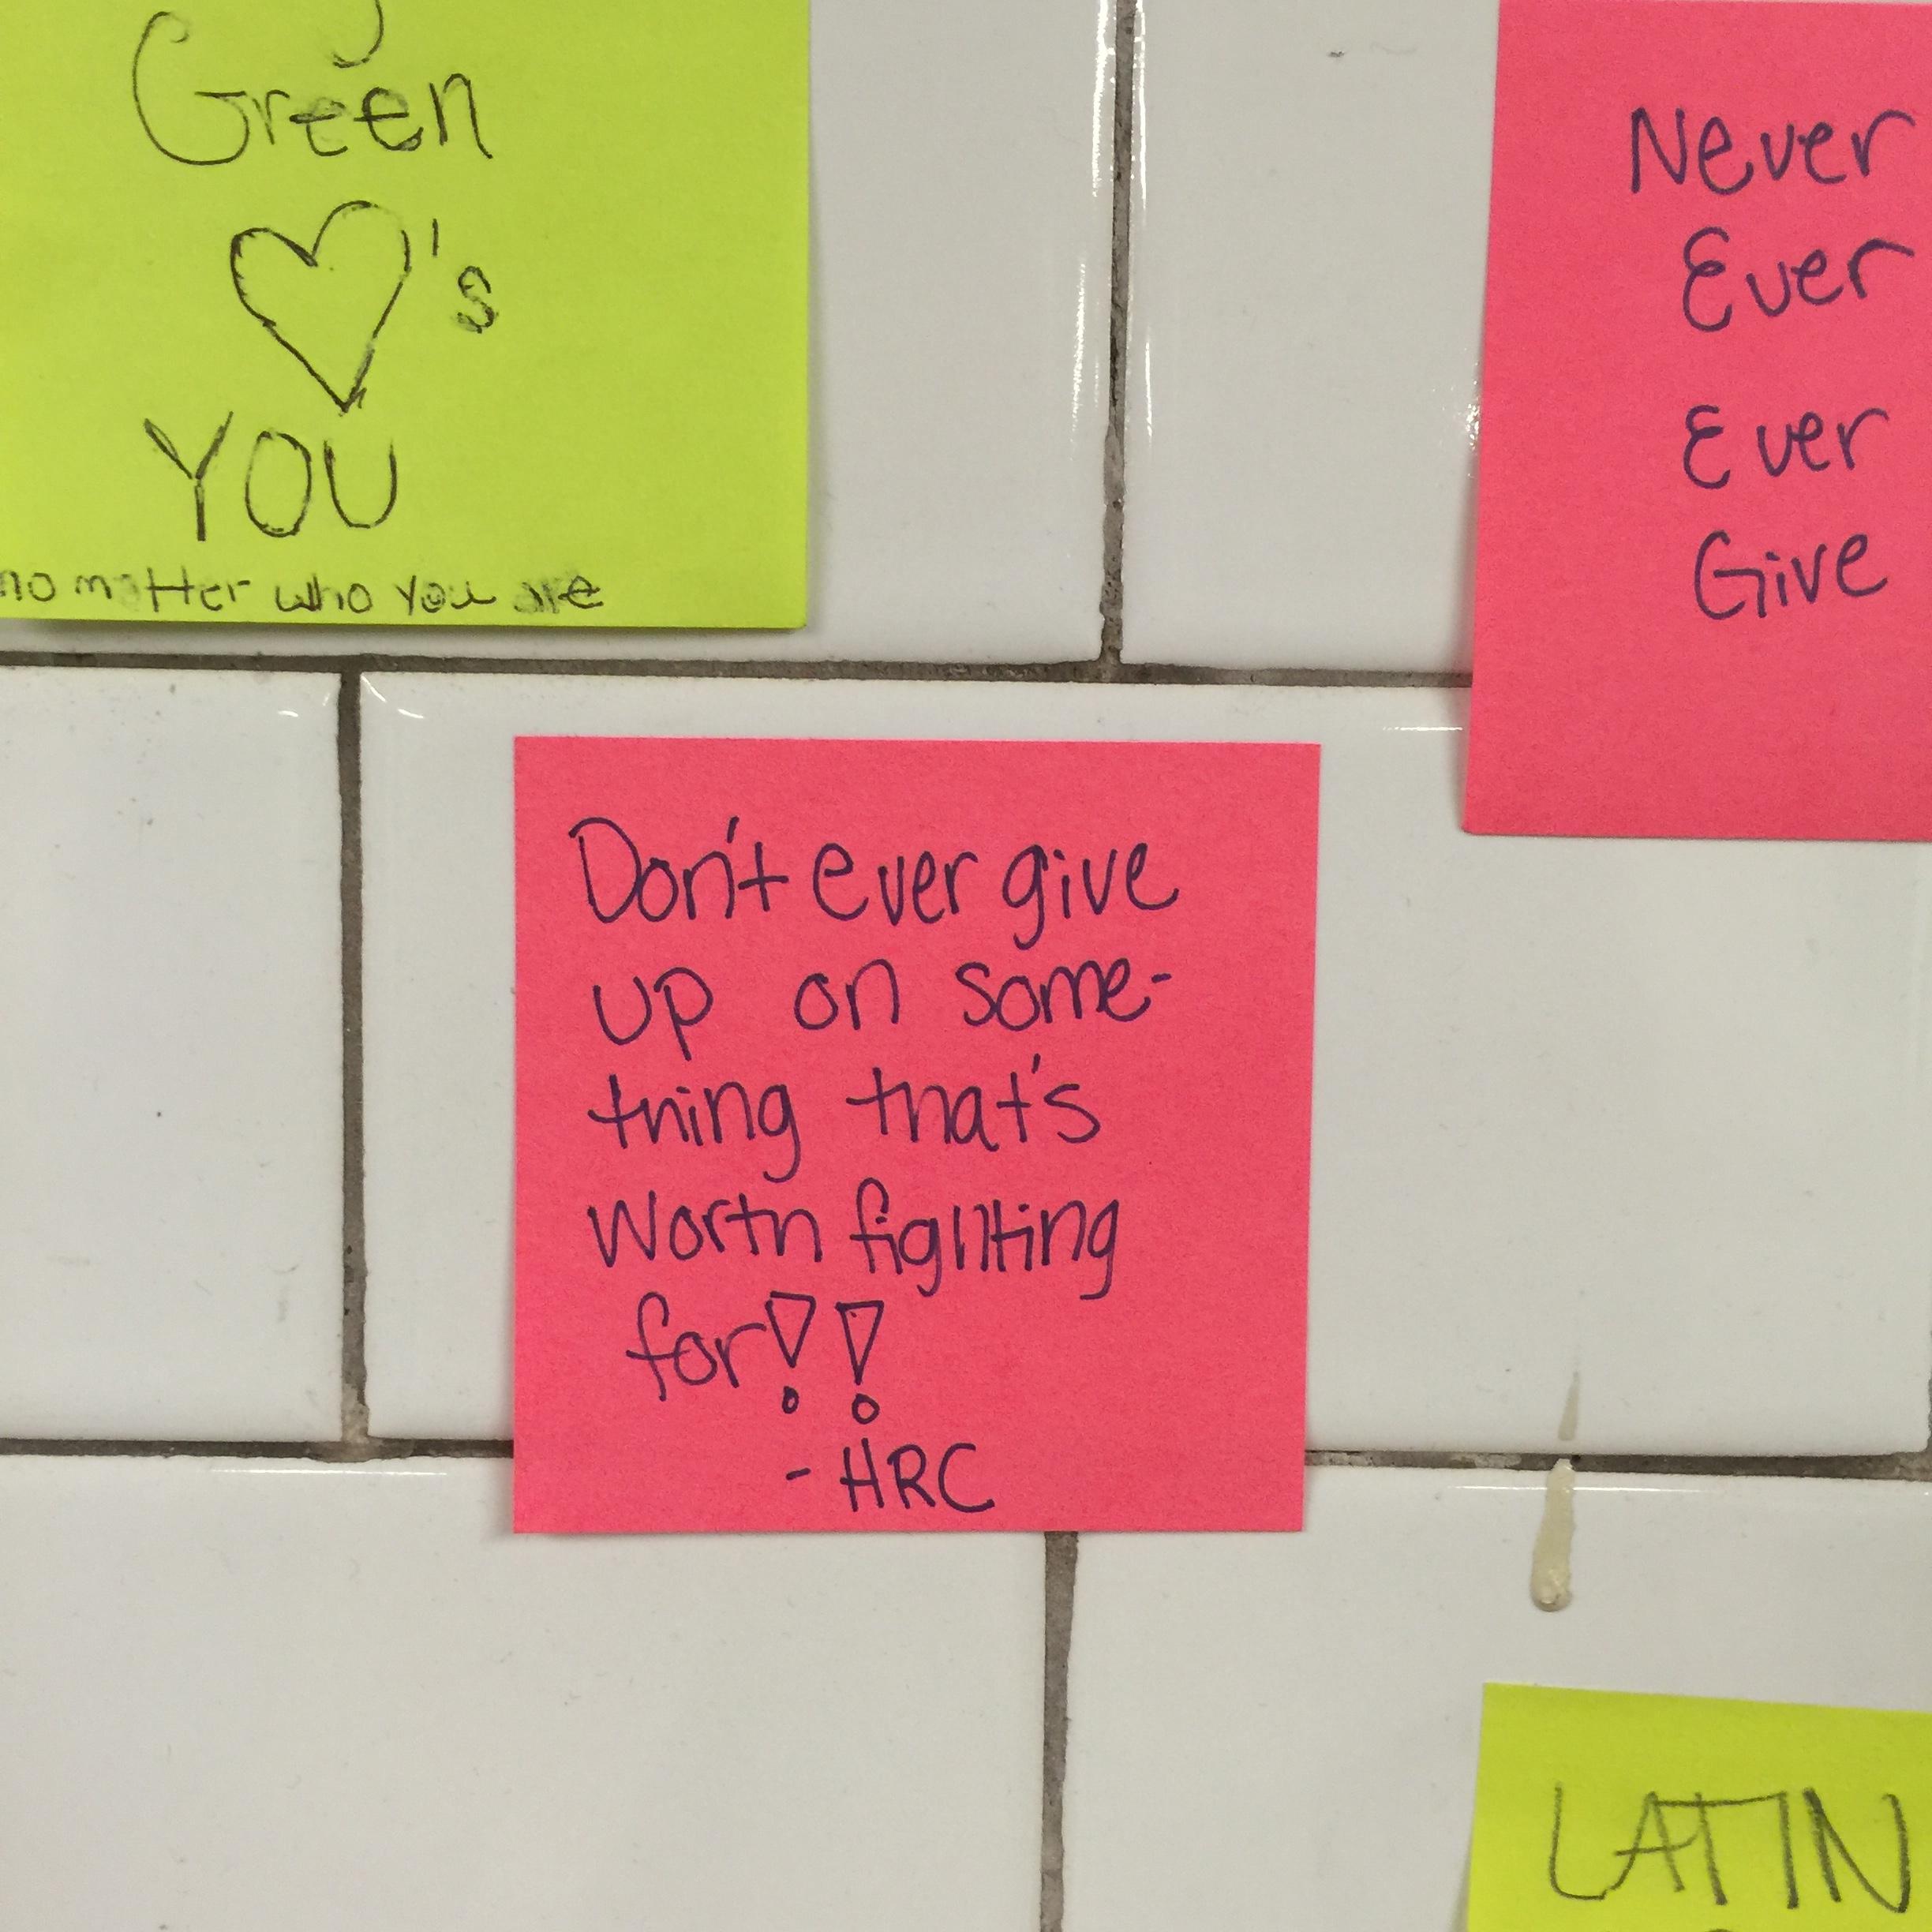 Green
♡'s
YOU
no matter who you are
Never
Ever
Ever
Give
Don't ever give
up on some-
thing that's
worth fighting
for!!
- HRC
LATIN